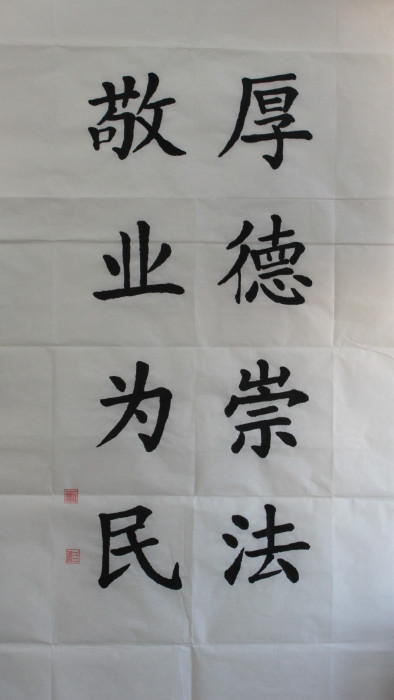 厚德崇法
敬业为民